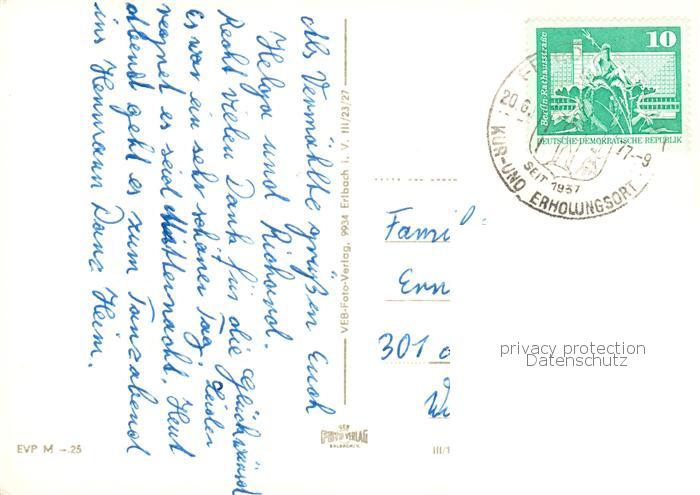 Als Vermählte grüßen Euch
Helga und Richard.
Recht vielen Dank für die Glückwünsche
Es war ein sehr schöner Tag, Leider
regnet es seid Mitternacht. Heut
abend geht es zum Tanzabend
ins Hermann Danz Heim.
EVP M –.25
VEB-Foto-Verlag, 9934 Erlbach i. V. III/23/27
VEB
FOTO-VERLAG
ERLBACH/V.
III/1
10
Berlin·Rathausstraße
DEUTSCHE·DEMOKRATISCHE REPUBLIK
20.6.
77-9
SEIT 1937
KUR-UND ERHOLUNGSORT
Famil
Enn
301
privacy protection
Datenschutz